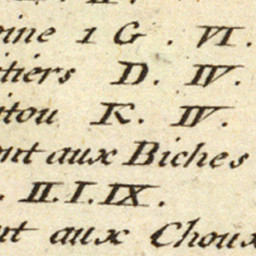 oine 1 G . VI.
tiers D. IV.
itou K. IV.
ont aux Biches
. II.I.IX.
nt aux Choux